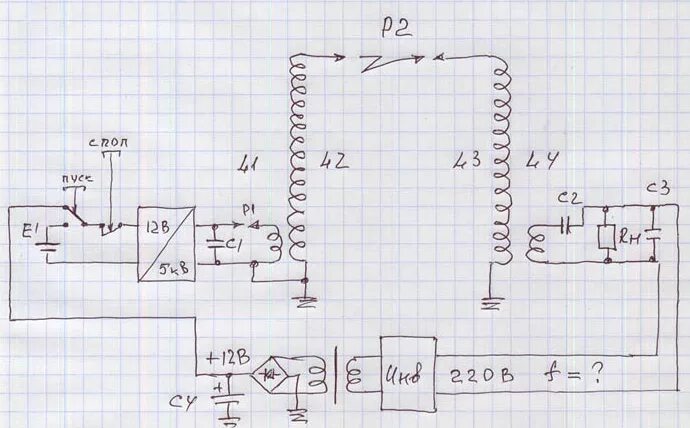 P2
стоп
пуск
41
42
43
44
C2
C3
E1
12В
5кВ
P1
C1
Rн
+12В
+
C4
Инв
220В f = ?